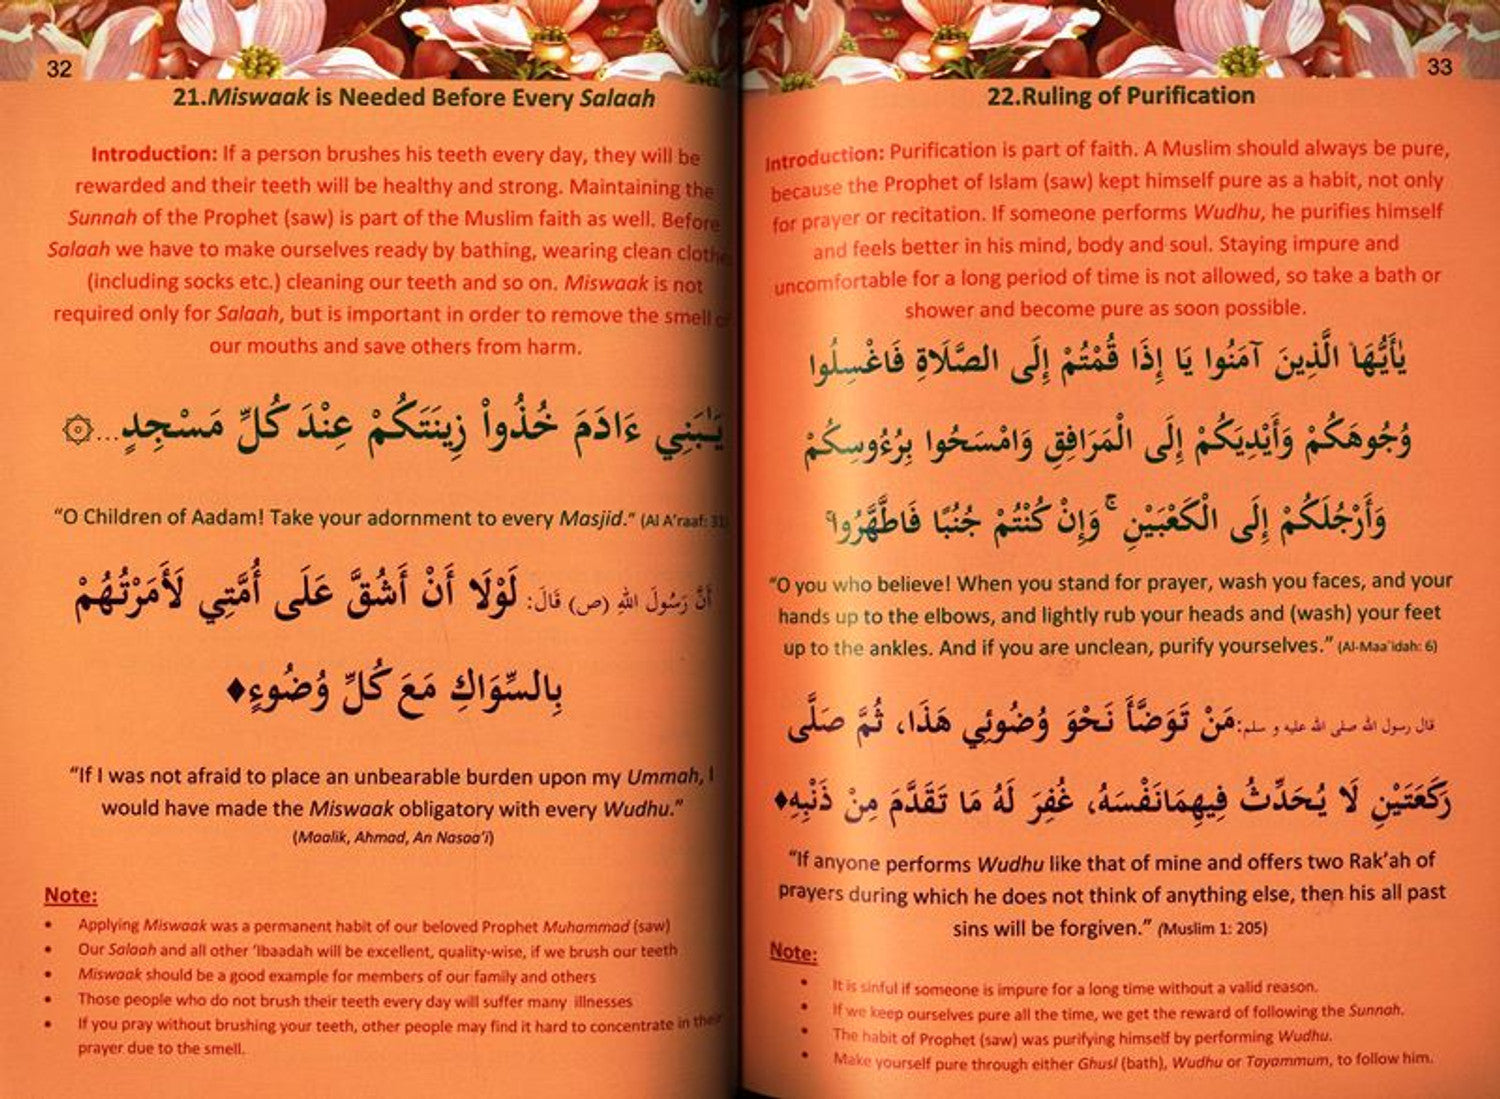 32
21.Miswaak is Needed Before Every Salaah
Introduction: If a person brushes his teeth every day, they will be
rewarded and their teeth will be healthy and strong. Maintaining the
Sunnah of the Prophet (saw) is part of the Muslim faith as well. Before
Salaah we have to make ourselves ready by bathing, wearing clean
(including socks etc.) cleaning our teeth and so on. Miswaak is not
required only for Salaah, but is important in order to remove the smell of
our mouths and save others from harm.
يَٰبَنِي ءَادَمَ خُذُواْ زِينَتَكُمْ عِنْدَ كُلِّ مَسْجِدٍ...۞
“O Children of Aadam! Take your adornment to every Masjid.” (Al A’raaf: 31)
أَنَّ رَسُولَ اللهِ (ص) قَالَ: لَوْلَا أَنْ أَشُقَّ عَلَى أُمَّتِي لَأَمَرْتُهُمْ
بِالسِّوَاكِ مَعَ كُلِّ وُضُوءٍ♦
“If I was not afraid to place an unbearable burden upon my Ummah, I
would have made the Miswaak obligatory with every Wudhu.”
(Maalik, Ahmad, An Nasaa’i)
Note:
• Applying Miswaak was a permanent habit of our beloved Prophet Muhammad (saw)
• Our Salaah and all other ‘Ibaadah will be excellent, quality-wise, if we brush our teeth
• Miswaak should be a good example for members of our family and others
• Those people who do not brush their teeth every day will suffer many illnesses
• If you pray without brushing your teeth, other people may find it hard to concentrate in their
prayer due to the smell.
33
22.Ruling of Purification
Introduction: Purification is part of faith. A Muslim should always be pure,
because the Prophet of Islam (saw) kept himself pure as a habit, not only
for prayer or recitation. If someone performs Wudhu, he purifies himself
and feels better in his mind, body and soul. Staying impure and
uncomfortable for a long period of time is not allowed, so take a bath or
shower and become pure as soon possible.
يٰأَيُّهَا الَّذِينَ آمَنُوا يَا إِذَا قُمْتُمْ إِلَى الصَّلَاةِ فَاغْسِلُوا
وُجُوهَكُمْ وَأَيْدِيَكُمْ إِلَى الْمَرَافِقِ وَامْسَحُوا بِرُءُوسِكُمْ
وَأَرْجُلَكُمْ إِلَى الْكَعْبَيْنِ ۚ وَإِنْ كُنْتُمْ جُنُبًا فَاطَّهَّرُوا ۚ
“O you who believe! When you stand for prayer, wash you faces, and your
hands up to the elbows, and lightly rub your heads and (wash) your feet
up to the ankles. And if you are unclean, purify yourselves.” (Al-Maa’idah: 6)
قال رسول الله صلى الله عليه و سلم:مَنْ تَوَضَّأَ نَحْوَ وُضُوئِي هَذَا، ثُمَّ صَلَّى
رَكَعَتَيْنِ لَا يُحَدِّثُ فِيهِمَانَفْسَهُ، غُفِرَ لَهُ مَا تَقَدَّمَ مِنْ ذَنْبِهِ♦
“If anyone performs Wudhu like that of mine and offers two Rak’ah of
prayers during which he does not think of anything else, then his all past
sins will be forgiven.” (Muslim 1: 205)
Note:
• It is sinful if someone is impure for a long time without a valid reason.
• If we keep ourselves pure all the time, we get the reward of following the Sunnah.
• The habit of Prophet (saw) was purifying himself by performing Wudhu.
• Make yourself pure through either Ghusl (bath), Wudhu or Tayammum, to follow him.